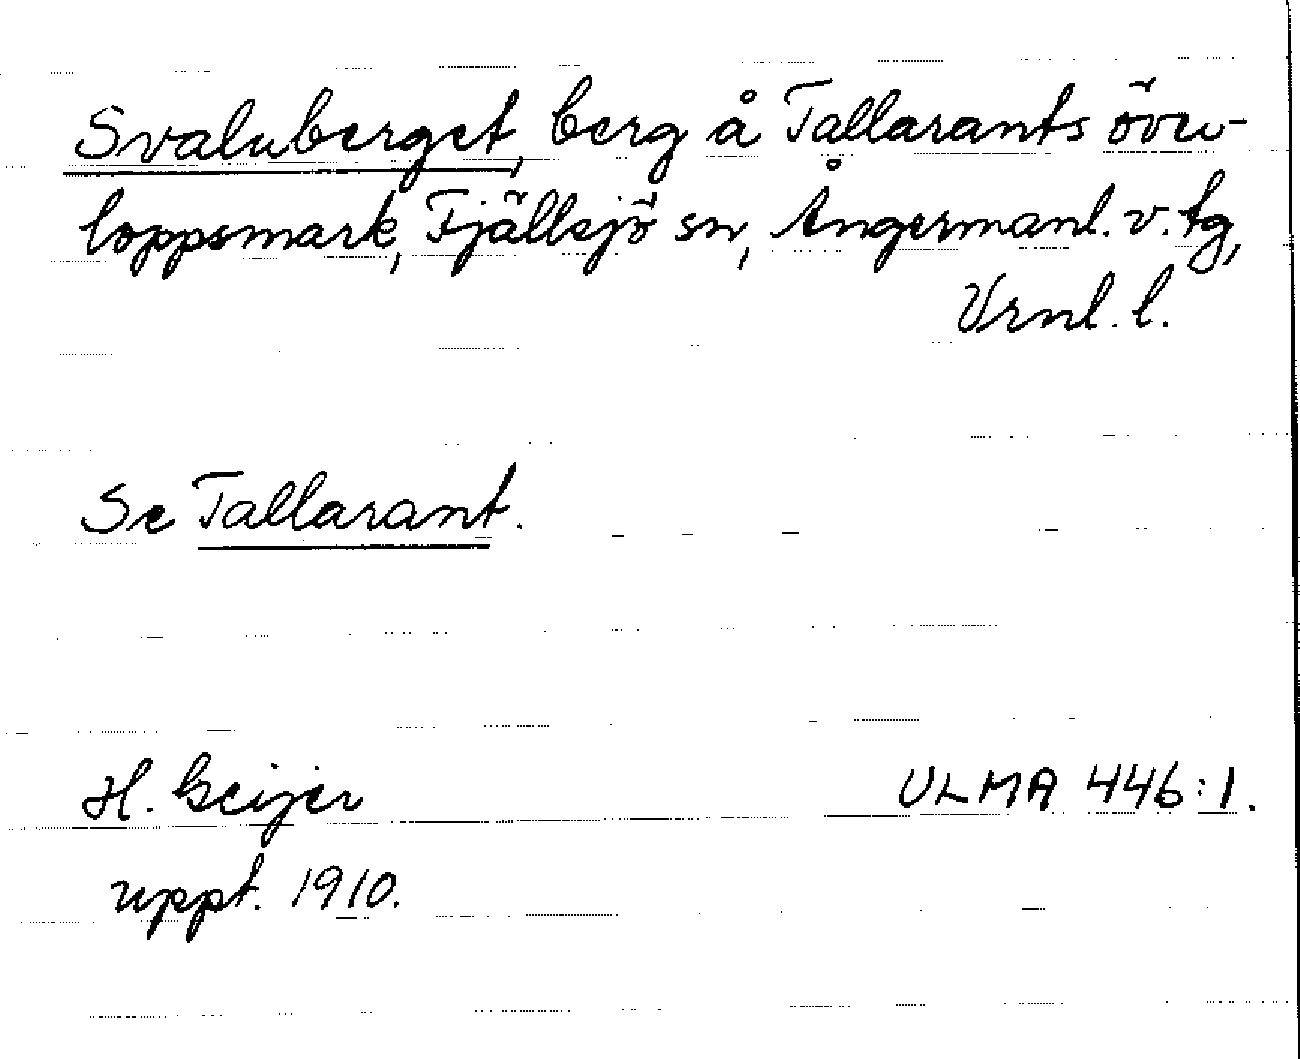 Svaluberget, berg å Tallarants över-
loppsmark, Fjällsjö sn, Ångermanl. v. tg,
Vrnl. l.
Se Tallarant.
H. Geijer
uppt. 1910.
ULMA 446:1.